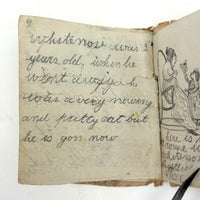 Whitenose was 2
years old, when he
went away he
was a very mowing
and pretty cat but
he is gon now
here is
come